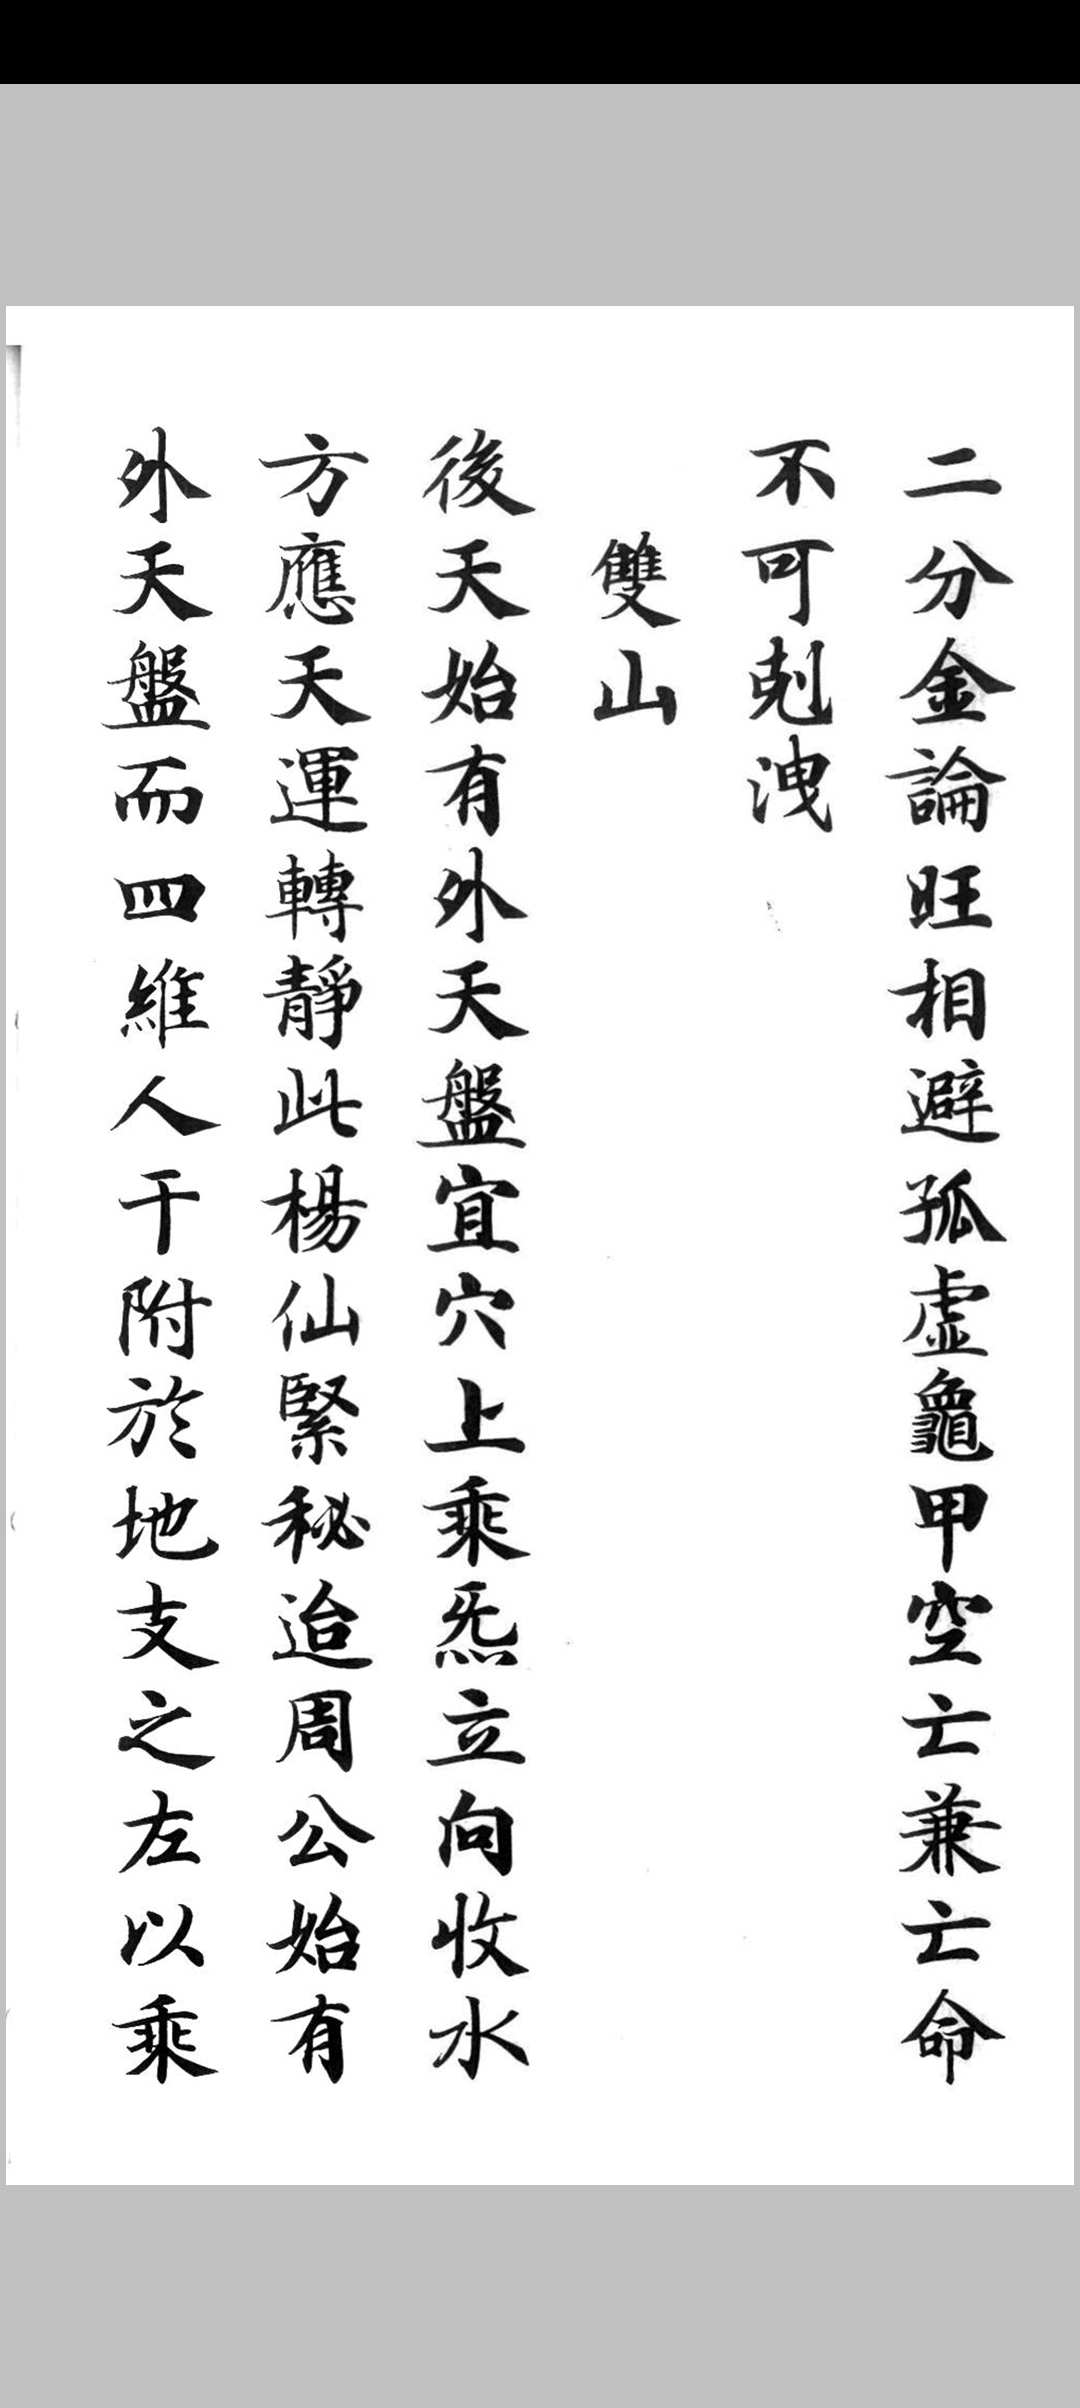 二分金論旺相避孤虛龜甲空亡兼亡命
不可剋洩
雙山
後天始有外天盤宜穴上乘炁立向收水
方應天運轉靜此楊仙緊秘迨周公始有
外天盤而四維人干附於地支之左以乘